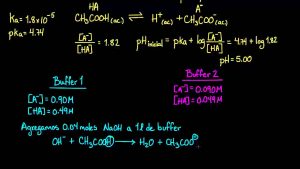 HA A⁻
Ka = 1.8x10⁻⁵ CH₃COOH (ac) ⇌ H⁺(ac) + CH₃COO⁻(ac)
pka = 4.74
[A⁻]/[HA] = 1.82 pH inicial = pka + log [A⁻]/[HA] = 4.74 + log 1.82
pH = 5.00
Buffer 1
[A⁻] = 0.90M
[HA] = 0.49M
Buffer 2
[A⁻] = 0.090M
[HA] = 0.049M
Agregamos 0.04 moles NaOH a 1l de buffer
OH⁻ + CH₃COOH → H₂O + CH₃COO⁻